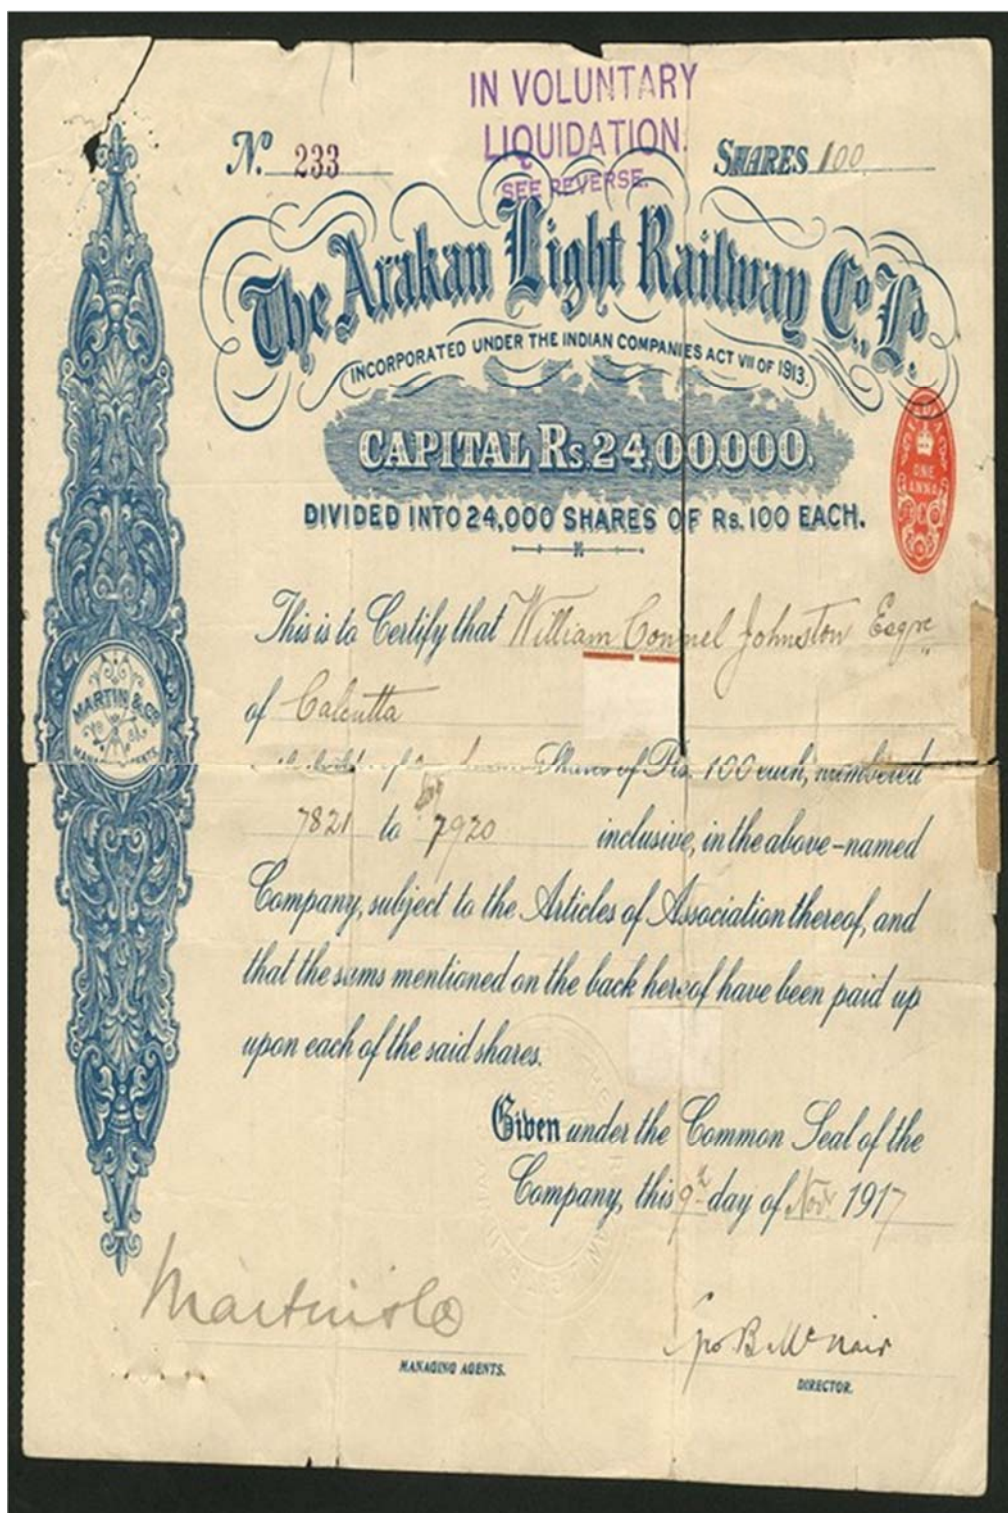 IN VOLUNTARY
LIQUIDATION.
SEE REVERSE.
No. 233
SHARES 100
The Arakan Light Railway Co., Ld.
INCORPORATED UNDER THE INDIAN COMPANIES ACT VII OF 1913.
CAPITAL Rs. 24,00,000.
DIVIDED INTO 24,000 SHARES OF Rs. 100 EACH.
ONE
ANNA
This is to Certify that William Connel Johnston Esqre
of Calcutta
Shares of Rs. 100 each, numbered
7821 to 7920 inclusive, in the above-named
Company, subject to the Articles of Association thereof, and
that the sums mentioned on the back hereof have been paid up
upon each of the said shares.
MARTIN & Co
Given under the Common Seal of the
Company, this 9th day of Nov. 1917
Martin & Co
MANAGING AGENTS.
Geo B McNair
DIRECTOR.